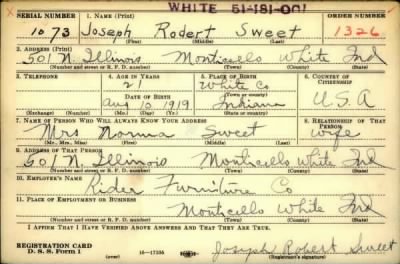 WHITE 51-181-001
SERIAL NUMBER 1. NAME (Print) ORDER NUMBER
1073 Joseph Rodert Sweet 1326
(First) (Middle) (Last)
2. ADDRESS (Print)
501 N. Illinois Monticello White Ind
(Number and street or R. F. D. number) (Town) (County) (State)
3. TELEPHONE 4. AGE IN YEARS 5. PLACE OF BIRTH 6. COUNTRY OF CITIZENSHIP
21 White Co
DATE OF BIRTH (Town or county)
Aug 10 1919 Indiana U.S.A
(Exchange) (No.) (Mo.) (Day) (Yr.) (State or country)
7. NAME OF PERSON WHO WILL ALWAYS KNOW YOUR ADDRESS 8. RELATIONSHIP OF THAT PERSON
Mrs Norma Sweet wife
(Mr., Mrs., Miss) (First) (Middle) (Last)
9. ADDRESS OF THAT PERSON
501 N. Illinois Monticello White Ind
(Number and street or R. F. D. number) (Town) (County) (State)
10. EMPLOYER'S NAME
Rider Furniture Co
11. PLACE OF EMPLOYMENT OR BUSINESS
Monticello White Ind
(Number and street or R. F. D. number) (Town) (County) (State)
I AFFIRM THAT I HAVE VERIFIED ABOVE ANSWERS AND THAT THEY ARE TRUE.
REGISTRATION CARD
D. S. S. Form 1 16-17105 Joseph Robert Sweet
(Registrant's signature)